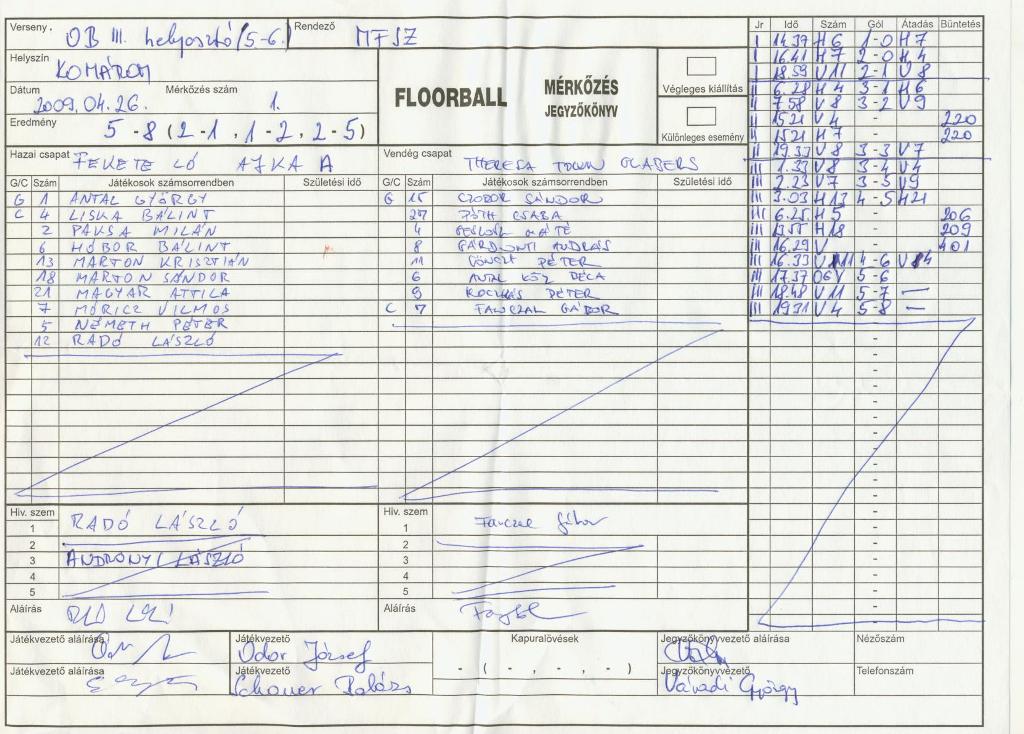 Verseny. OB III. helyosztó (5-6.) Rendező MFSZ
Helyszín KOMÁROM
Dátum 2009.04.26. Mérkőzés szám 1.
Eredmény 5-8 (2-1, 1-2, 2-5)
FLOORBALL MÉRKŐZÉS JEGYZŐKÖNYV
Végleges kiállítás
Különleges esemény
Hazai csapat FEKETE LÓ AJKA A
Vendég csapat THERESA TOWN
G/C Szám Játékosok számsorrendben Születési idő
G 1 ANTAL GYÖRGY
C 4 LISKA BÁLINT
2 PAKSA MILÁN
6 HÓBOR BÁLINT
13 MARTON KRISZTIÁN
18 MARTON SÁNDOR
21 MAGYAR ATTILA
7 MÓRICZ VILMOS
5 NÉMETH PÉTER
12 RADÓ LÁSZLÓ
G/C Szám Játékosok számsorrendben Születési idő
G 15 CZOBOR SÁNDOR
27 TÓTH CSABA
4 MÁTÉ
8 GÁRDONYI ANDRÁS
11 PÉTER
6 ANTAL
9 PÉTER
C 7 GÁBOR
Jr Idő Szám Gól Átadás Büntetés
I 14.37 H6 1-0 H7
I 16.41 H7 2-0 H4
I 18.59 V11 2-1 V8
II 6.28 H4 3-1 H6
II 7.58 V8 3-2 V9
II 15.21 V4 220
II 15.21 H7 220
II 19.37 V8 3-3 V7
III 1.33 V8 3-4 V4
III 2.23 V7 3-5 V9
III 3.03 H13 4-5 H21
III 6.25 H5 206
III 13.55 H18 209
III 16.29 V 401
III 16.33 V11 4-6 V4
III 17.37 OGV 5-6
III 18.48 V11 5-7 —
III 19.31 V4 5-8 —
Hiv. szem
1 RADÓ LÁSZLÓ
2
3 ANDRÓNYI LÁSZLÓ
4
5
Hiv. szem
1
2
3
4
5
Aláírás
Aláírás
Játékvezető aláírása Játékvezető Odor József
Játékvezető aláírása Játékvezető Schauer Balázs
Kapuralövések
- ( - , - , - )
Jegyzőkönyvvezető aláírása
Jegyzőkönyvvezető Váradi György
Nézőszám
Telefonszám